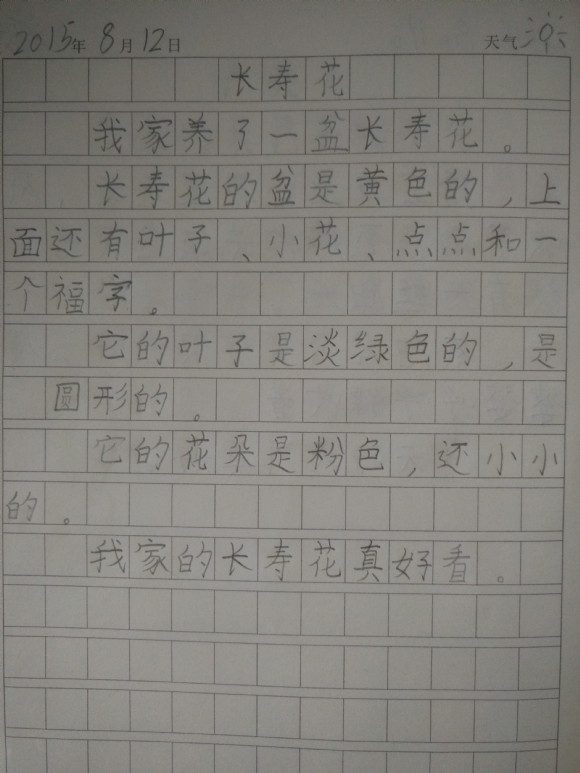 2015年8月12日 天气
长寿花
我家养了一盆长寿花。
长寿花的盆是黄色的,上
面还有叶子、小花、点点和一
个福字。
它的叶子是淡绿色的,是
圆形的。
它的花朵是粉色,还小小
的。
我家的长寿花真好看。